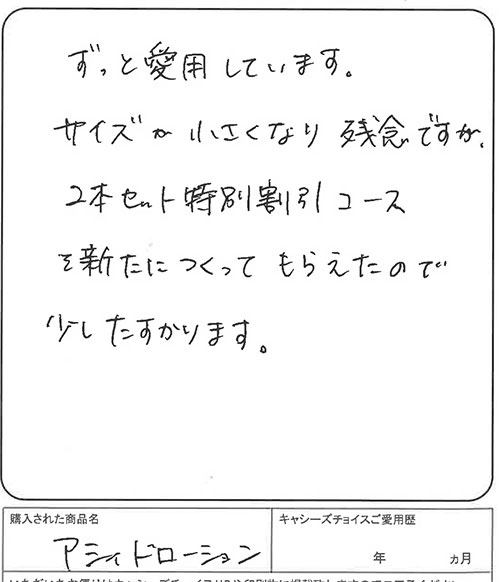 ずっと愛用しています。
サイズが小さくなり残念ですが、
2本セット特別割引コース
を新たにつくってもらえたので
少したすかります。
購入された商品名
キャシーズチョイスご愛用歴
アシィドローション
年 ヵ月